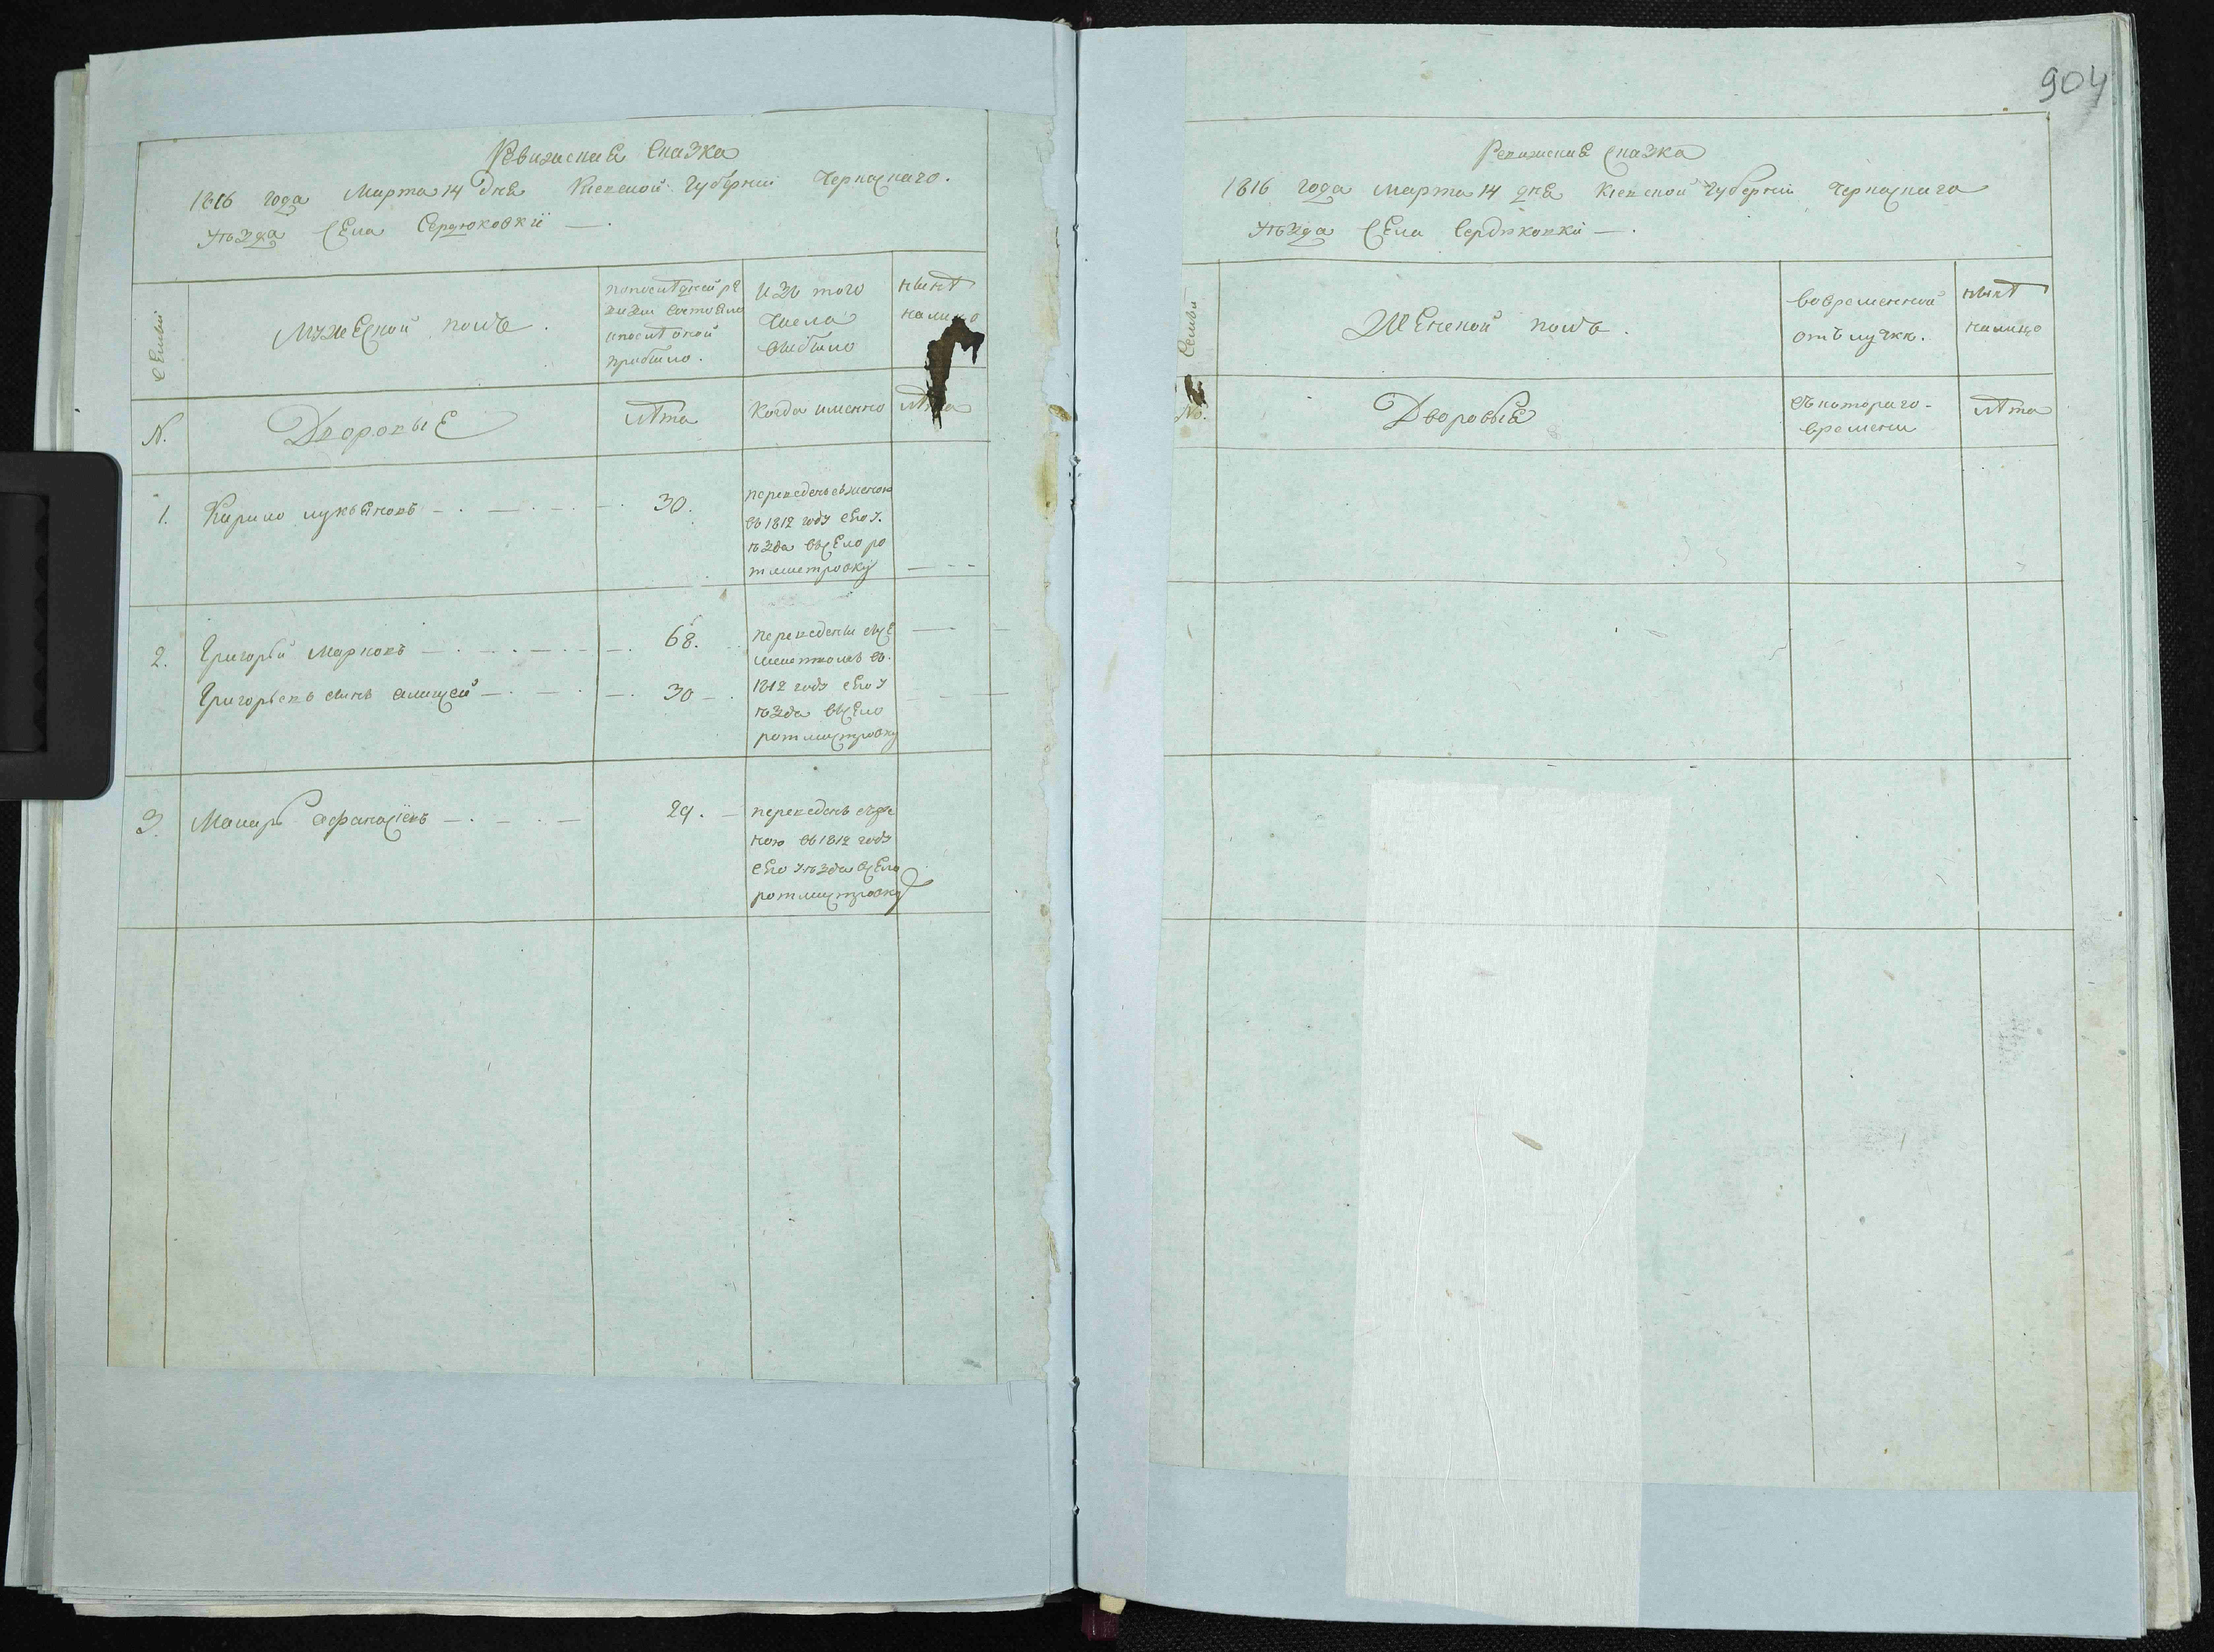 Ревижская Сказка
1816 года Марта 14 дня Киевской Губернии Черкаскаго.
Уѣзда Села Сердюковки
Семьи
Мужеской полъ.
попоследней ре
визии состояло
ипослѣ оной
прибыло.
Изъ того
числа
выбыло
нынѣ
налицо
N.
Дворовые
лѣта
Когда именно
лѣта
1.
Кирило лукьяновъ
30.
переведенъ сженою
въ 1812 году сего у
ѣзда въсело ро
тмистровку
2.
Григорій Марковъ
68.
Григорьевъ сынъ алищей
30
переведены съсе
мействомъ въ
1812 году сего у
ѣзда въсело
ротмистровку
3.
Макаръ афанасіевъ
29.
переведенъ сже
ною въ 1812 году
сего уѣзда въсело
ротмистровку
904
Ревижская Сказка
1816 года Марта 14 дня Киевской Губернии Черкаскаго
Уѣзда Села Сердюковки
Семьи
Женской полъ.
вовременной
отълучки.
нынѣ
налицо
№.
Дворовые
съкотораго
времени
лѣта